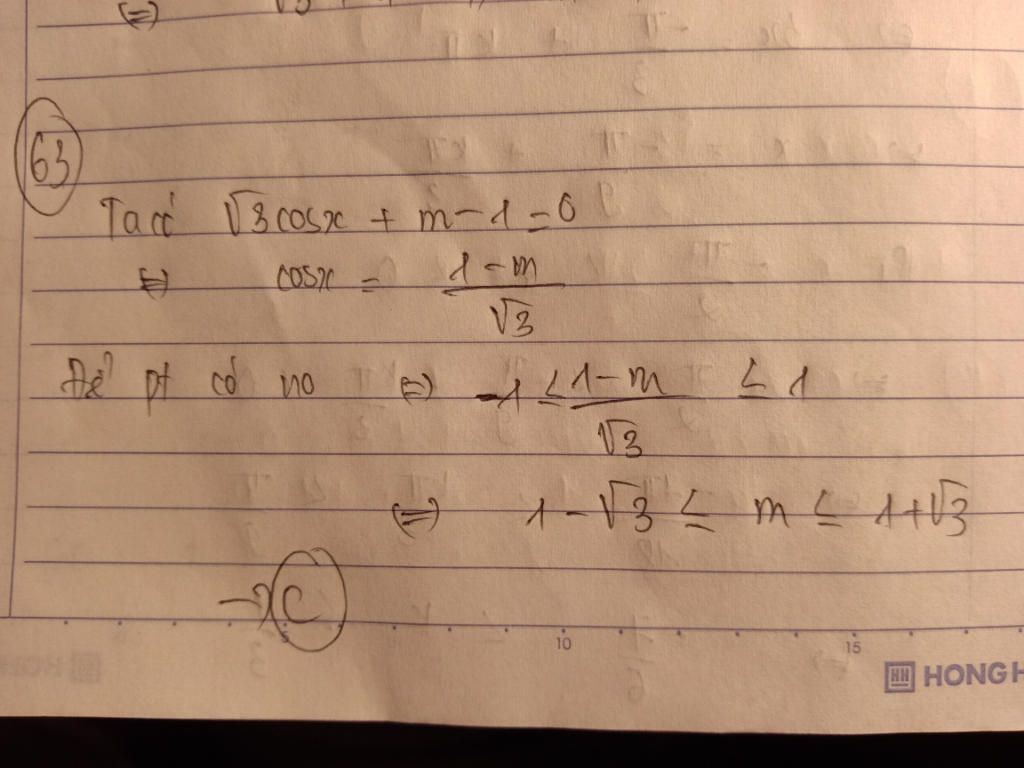 (=)
63
Ta có √3 cosx + m - 1 = 0
(=) cosx = (1 - m)/√3
Để pt có no (=) -1 ≤ (1 - m)/√3 ≤ 1
(=) 1 - √3 ≤ m ≤ 1 + √3
→ C
5 10 15
HH HONG H